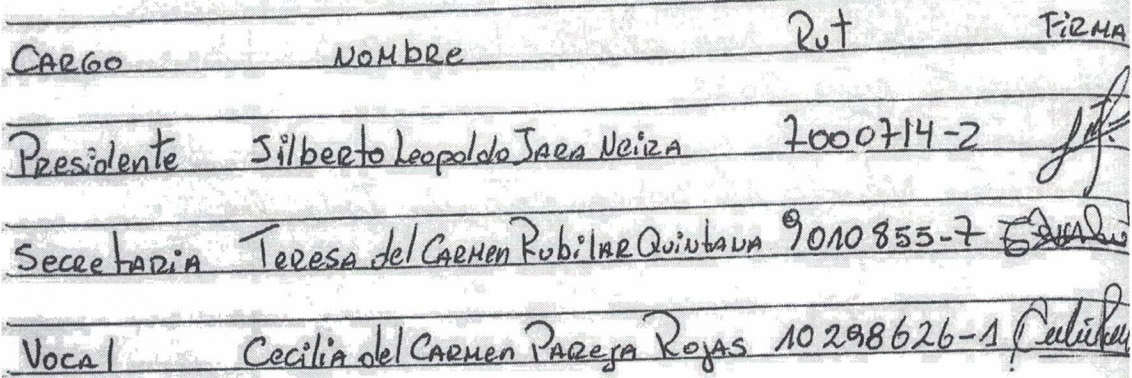 CARGO NOMBRE Rut FiRMA
Presidente Silberto Leopoldo JARA NeiRA 7000714-2
SecretARiA TeResA del CARMen RubilAR QuintANA 9010855-7
VocAl CeciliA del CARMen PARejA RojAS 10298626-1